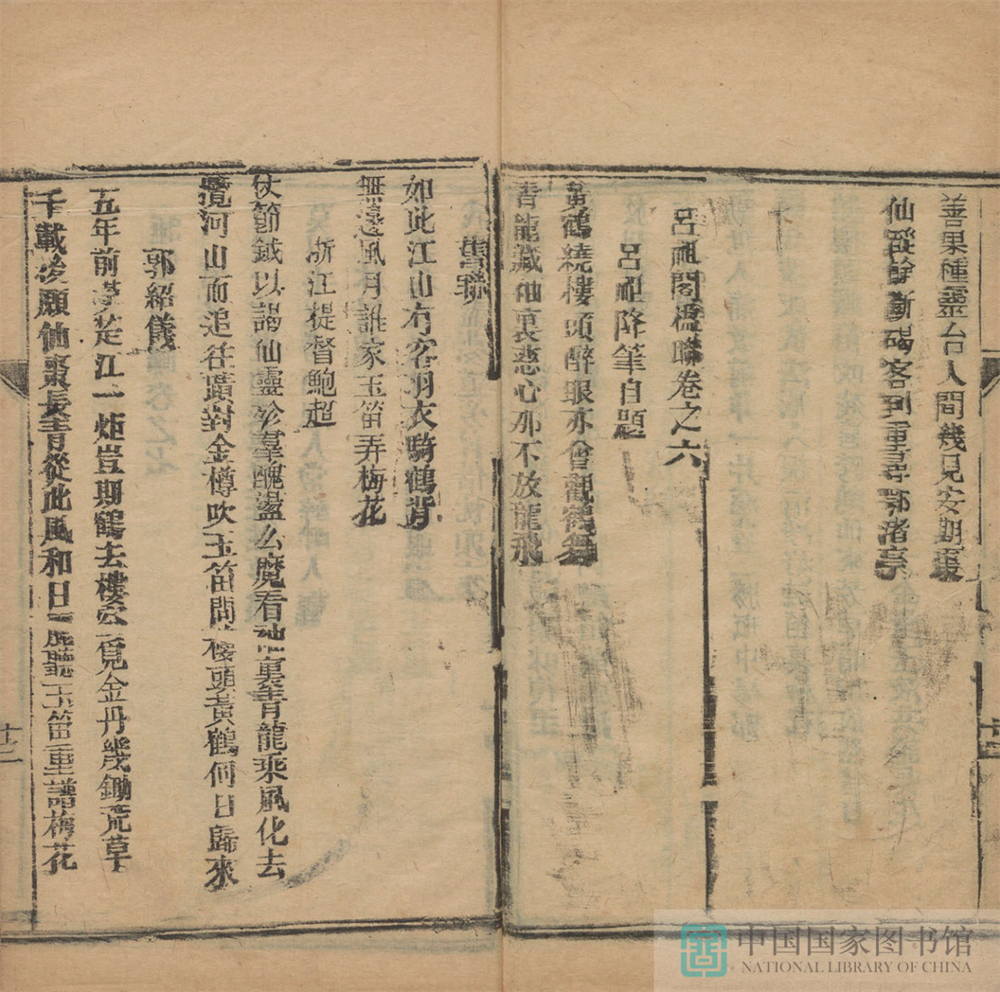 善果種靈台人間幾見安期棗
仙蹤餘斷碣客到重尋鄂渚亭
呂祖閣楹聯卷之六
呂祖降筆自題
黃鶴繞樓頭醉眼亦曾觀鶴舞
青龍藏袖裏慈心那不放龍飛
集聯
如此江山有客羽衣騎鶴背
無邊風月誰家玉笛弄梅花
浙江提督鮑超
仗節鉞以謁仙靈殄羣醜盪么魔看袖裏青龍乘風化去
攬河山而追往蹟對金樽吹玉笛問樓頭黃鶴何日歸來
郭紹儀
五年前夢芜江一炬豈期鶴去樓空覓金丹幾鋤荒草
千載後願仙棗長青從此風和日麗聽玉笛重譜梅花
十二
中国国家图书馆
NATIONAL LIBRARY OF CHINA